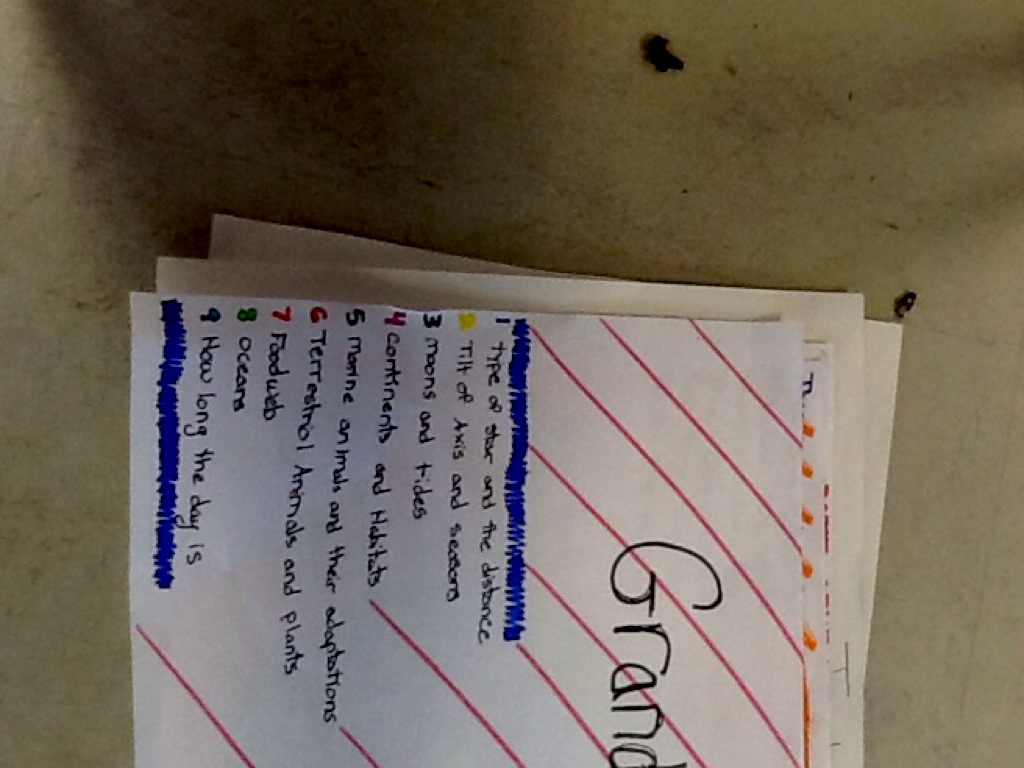 Grand
1 type of star and the distance
2 Tilt of Axis and seasons
3 moons and tides
4 continents and Habitats
5 marine animals and their adaptations
6 Terrestrial Animals and plants
7 Foodweb
8 oceans
9 How long the day is